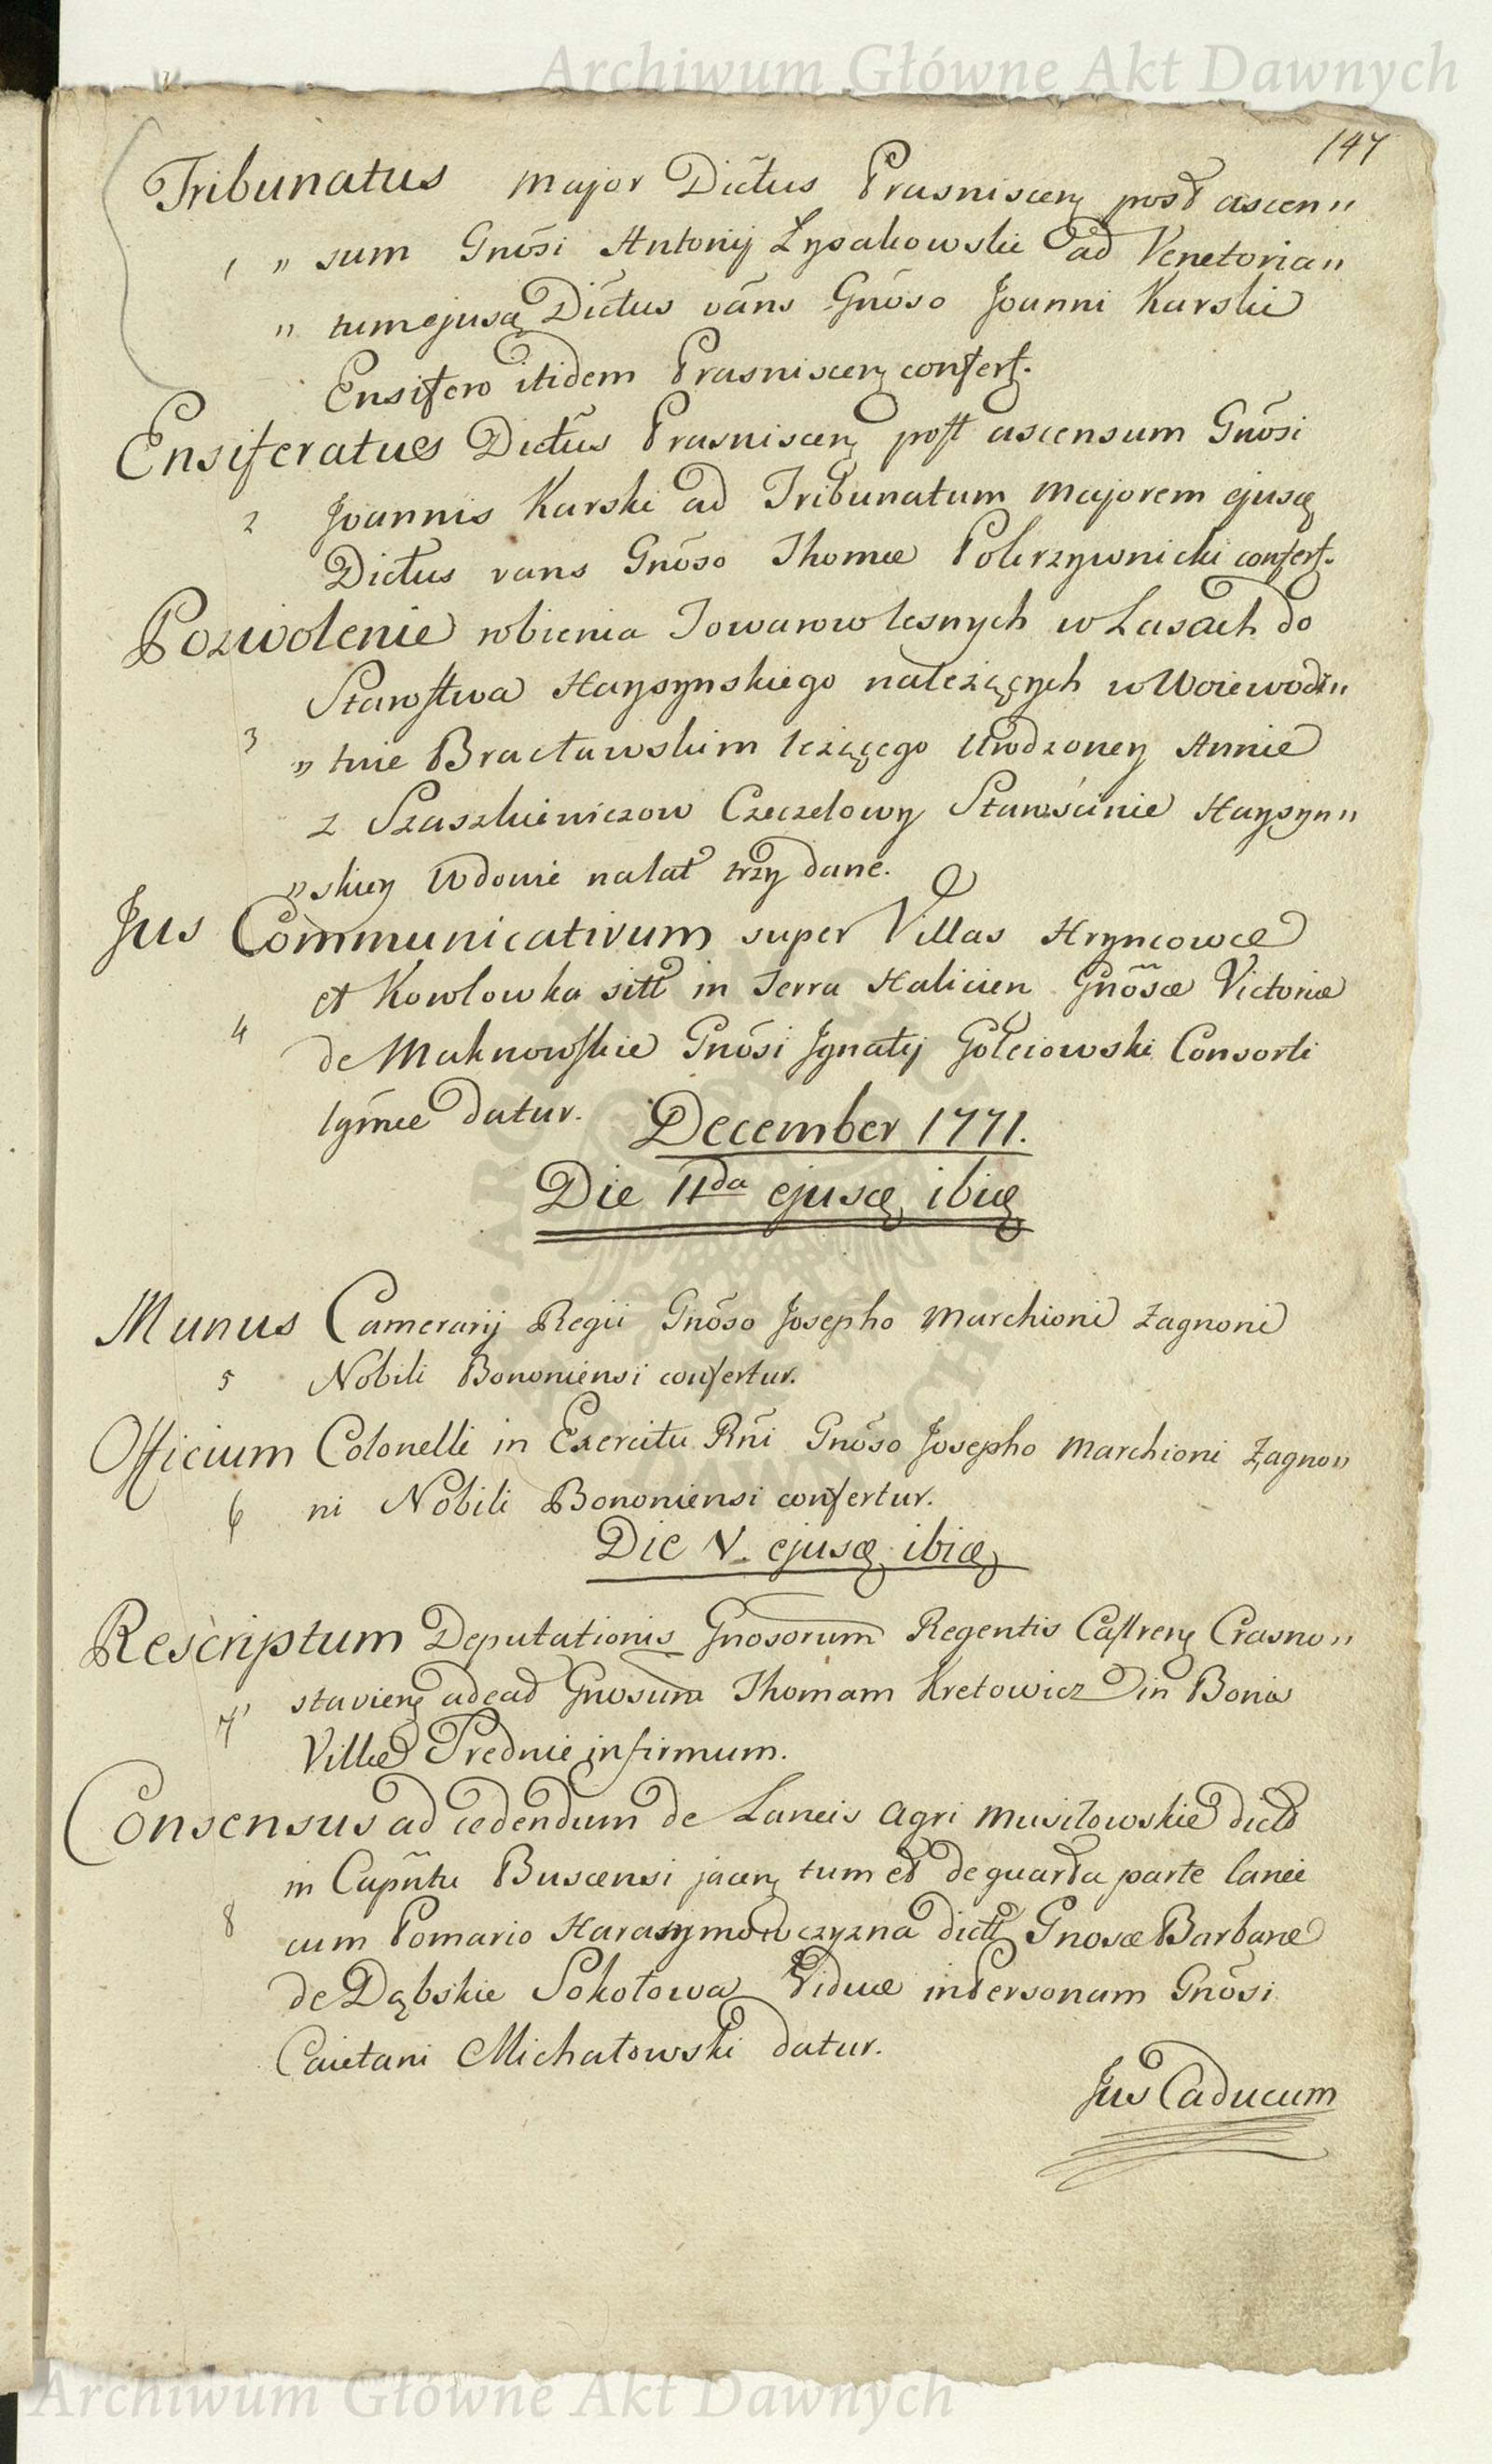 Archiwum Główne Akt Dawnych
147
Tribunatus major Dictus Prasniscen post ascen„
1 „ sum Gnosi Antonij Łysakowski ad Venatoria„
„ tum ejusd Dictus vans Gnoso Joanni Karski
Ensifero itidem Prasniscen confert.
Ensiferatus Dictus Prasniscen post ascensum Gnosi
2 Joannis Karski ad Tribunatum majorem ejusd
Dictus vans Gnoso Thomæ Pokrzywnicki confert.
Pozwolenie robienia Towarow lesnych w Lasach do
Starostwa Haysynskiego należących w Woiewodz„
3 „ twie Bracławskim leżącego Urodzoney Annie
z Szaszkiewiczow Czeczelowy Starościnie Haysyn„
„skiey Wdowie na lat trzy dane.
Jus Communicativum super Villas Hryncowce
et Kowlowka sitt in Terra Halicien Gnosæ Victoriæ
4 de Maknowskie Gnosi Ignatij Gołeiowski Consorti
lgmæ datur.
December 1771.
Die IIda ejusd ibid
Munus Camerarij Regii Gnoso Josepho Marchioni Zagnoni
5 Nobili Bononiensi confertur.
Officium Colonelli in Exercitu Rni Gnoso Josepho Marchioni Zagno„
6 ni Nobili Bononiensi confertur.
Die V. ejusd ibid
Rescriptum Deputationis Gnosorum Regentis Castren Crasno„
7 stavien ad ead Gnosum Thomam Kretowicz in Bonis
Villæ Przednie infirmum.
Consensus ad cedendum de Laneis Agri Musiłowskie dicto
in Capntu Buscensi jacen tum et de quarta parte lanei
8 cum Pomario Harasymowczyzna dict Gnosæ Barbaræ
de Dąbskie Sokołowa Viduæ in Personam Gnosi
Caietani Michałowski datur.
Jus Caducum
Archiwum Główne Akt Dawnych